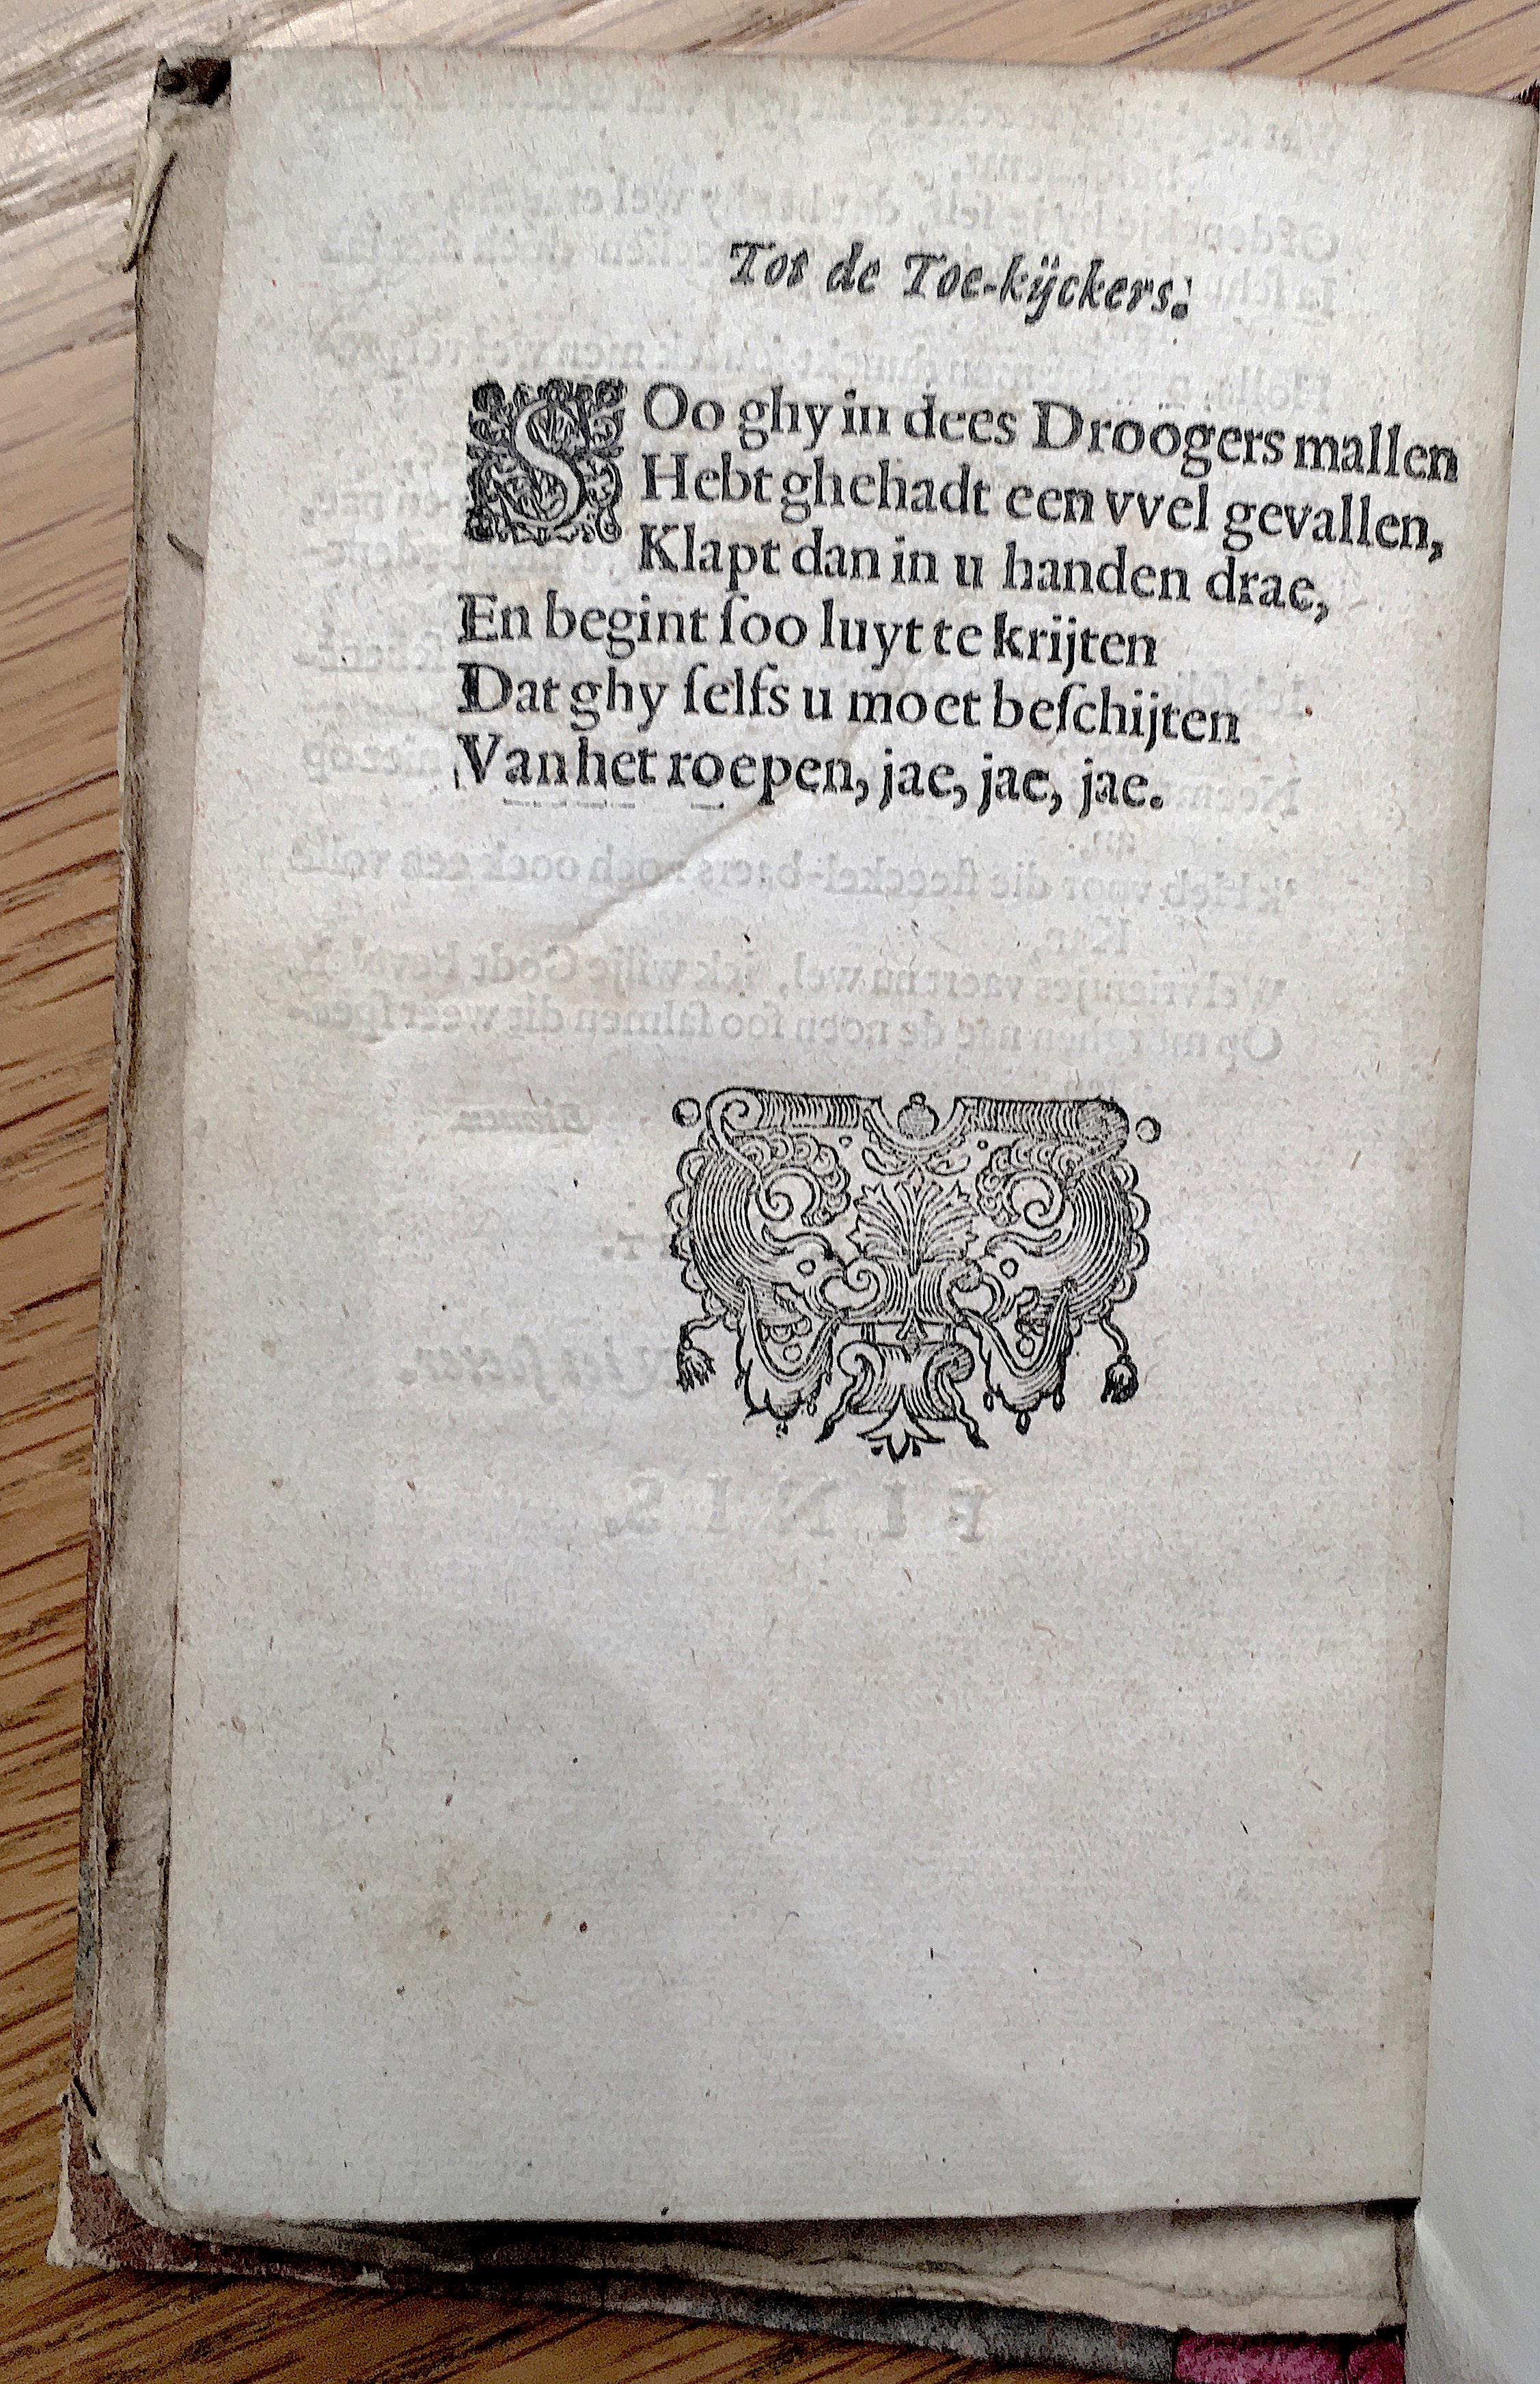 Tot de Toe-kijckers.
SOo ghy in dees Droogers mallen
Hebt ghehadt een vvel gevallen,
Klapt dan in u handen drae,
En begint ſoo luyt te krijten
Dat ghy ſelfs u moet beſchijten
Van het roepen, jae, jae, jae.